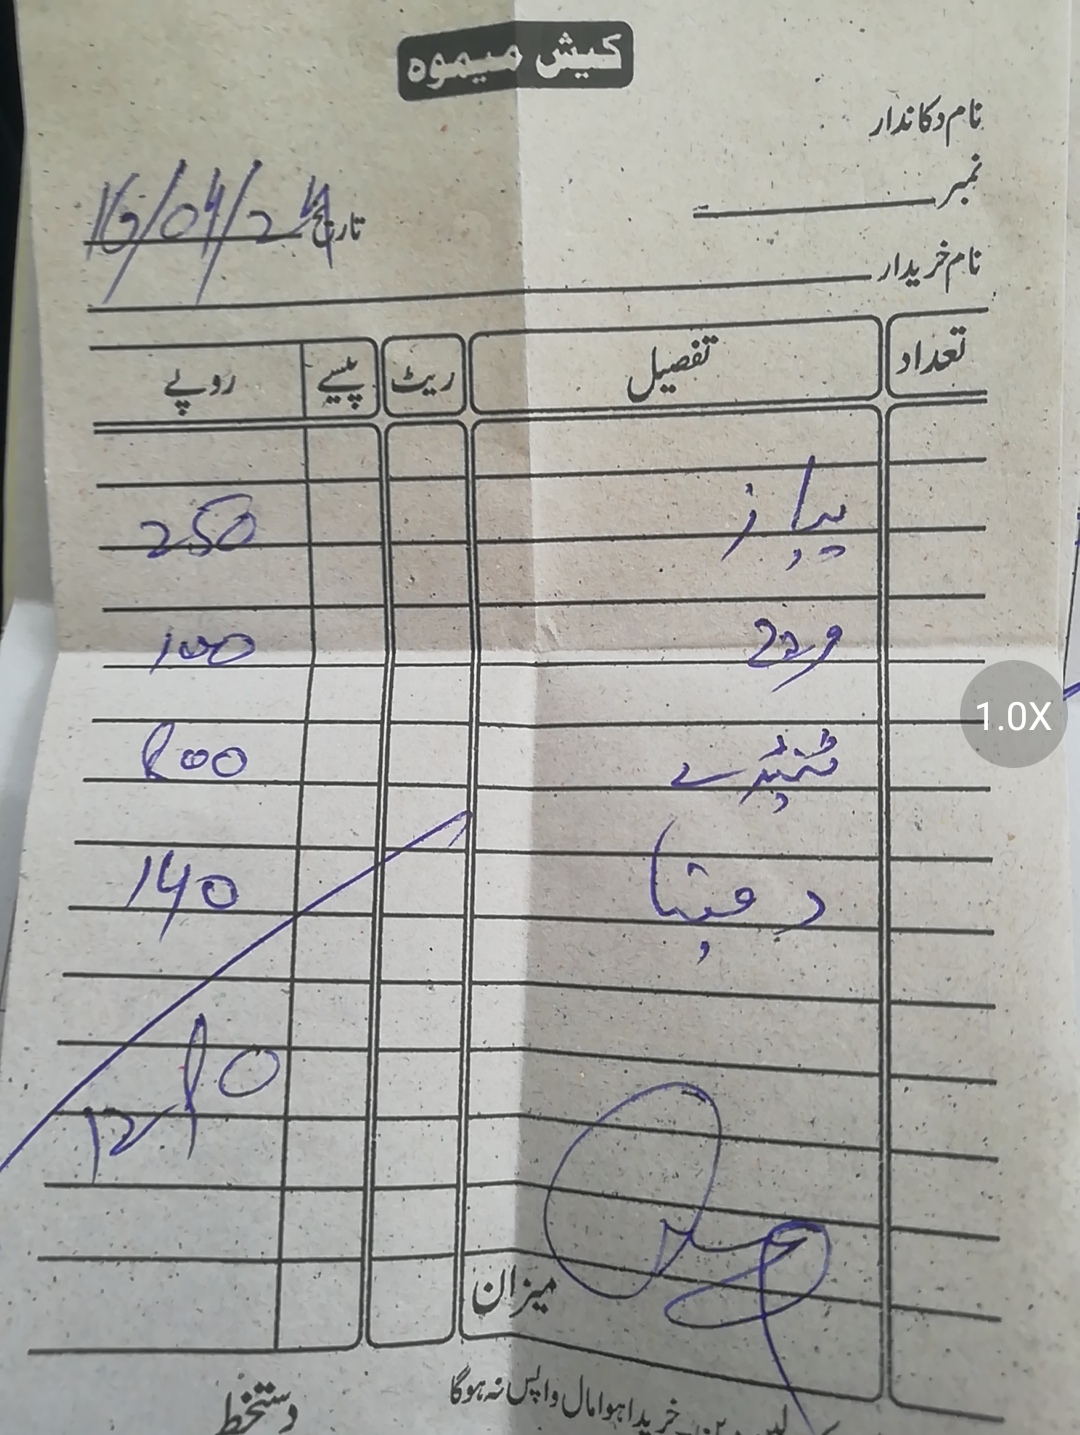 کیش میموہ
نام دکاندار
نمبر
تاریخ 16/04/24
نام خریدار
تعداد تفصیل ریٹ پیسے روپے
پیاز 250
100
800
140
1290
میزان
خریدا ہوا مال واپس نہ ہوگا
دستخط
1.0X